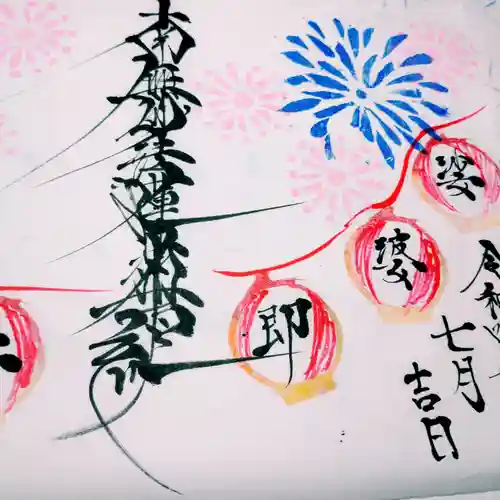 娑
婆
即
令和
七月
吉日
南無妙法蓮華経